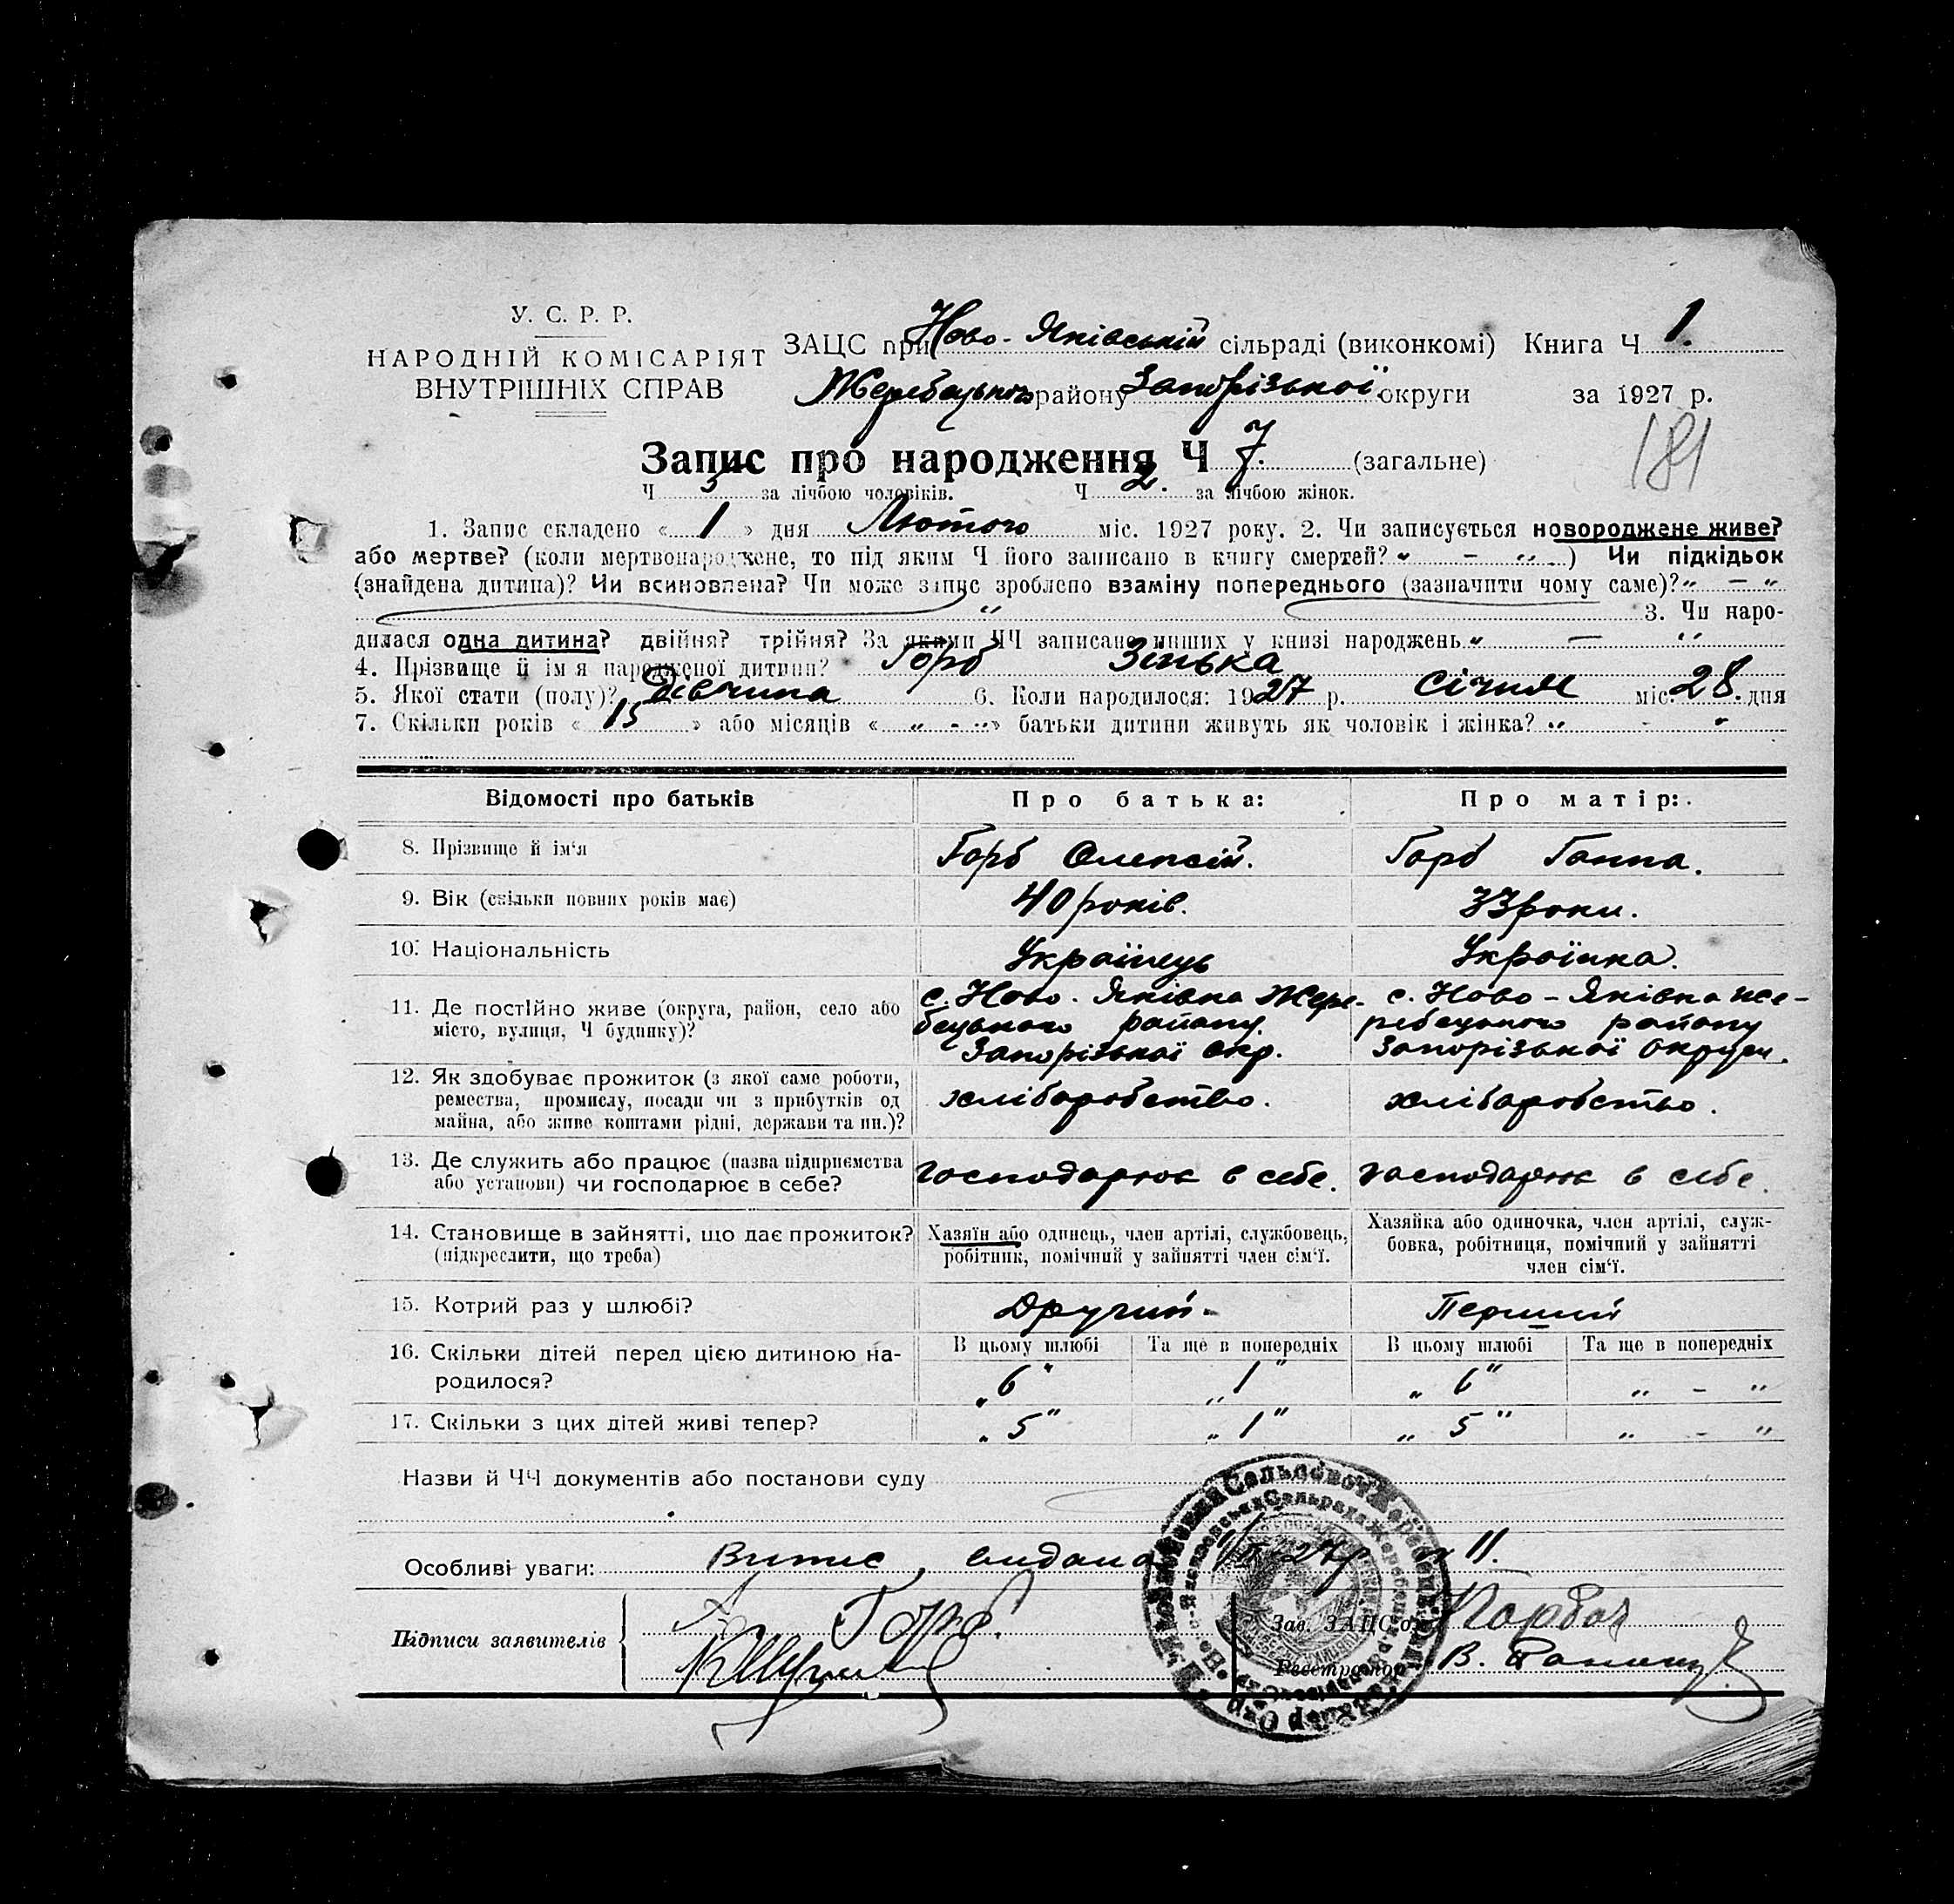 У. С. Р. Р.
НАРОДНІЙ КОМІСАРІЯТ
ВНУТРІШНІХ СПРАВ
ЗАЦС при Ново-Яківській сільраді (виконкомі) Книга Ч 1.
Жеребецького району Запорізької округи за 1927 р.
181
Запис про народження Ч 7. (загальне)
Ч 5 за лічбою чоловіків. Ч 2. за лічбою жінок.
1. Запис складено « 1 » дня Лютого міс. 1927 року. 2. Чи записується новороджене живе?
або мертве? (коли мертвонароджене, то під яким Ч його записано в книгу смертей? „ – “ ) Чи підкідьок
(знайдена дитина)? Чи всиновлена? Чи може запис зроблено взаміну попереднього (зазначити чому саме)? „ – “
“ 3. Чи наро-
дилася одна дитина? двійня? трійня? За якими ЧЧ записано инших у книзі народжень „ — “
4. Прізвище й ім'я народженої дитини? Горб Зінька
5. Якої стати (полу)? Дівчина 6. Коли народилося: 1927 р. січня міс. 28. дня
7. Скільки років « 15 » або місяців « „ - “ » батьки дитини живуть як чоловік і жінка? „ - “
Відомості про батьків Про батька: Про матір:
8. Прізвище й ім'я Горб Олексій. Горб Ганна.
9. Вік (скільки повних років має) 40 років. 33 роки.
10. Національність Українець Українка.
11. Де постійно живе (округа, район, село або місто, вулиця, Ч будинку)?
с. Ново-Яківка Жере-
бецького району
Запорізької окр.
с. Ново-Яківка Же-
ребецького району
Запорізької округи.
12. Як здобуває прожиток (з якої саме роботи,
ремества, промислу, посади чи з прибутків од
майна, або живе коштами рідні, держави та ин.)?
хліборобство. хліборобство.
13. Де служить або працює (назва підприємства
або установи) чи господарює в себе?
господарює в себе. господарює в себе.
14. Становище в зайнятті, що дає прожиток?
(підкреслити, що треба)
Хазяїн або одинець, член артілі, службовець,
робітник, помічний у зайнятті член сім'ї.
Хазяйка або одиночка, член артілі, служ-
бовка, робітниця, помічний у зайнятті
член сім'ї.
15. Котрий раз у шлюбі? Другий. Перший
16. Скільки дітей перед цією дитиною на-
родилося?
В цьому шлюбі Та ще в попередніх В цьому шлюбі Та ще в попередніх
„ 6 “ „ 1 “ „ 6 “ „ - “
17. Скільки з цих дітей живі тепер? „ 5 “ „ 1 “ „ 5 “ „ - “
Назви й ЧЧ документів або постанови суду
Особливі уваги: Витис видана 27р 11.
Підписи заявителів
Горб.
Зав. ЗАЦС'ом
Реєстратор В.